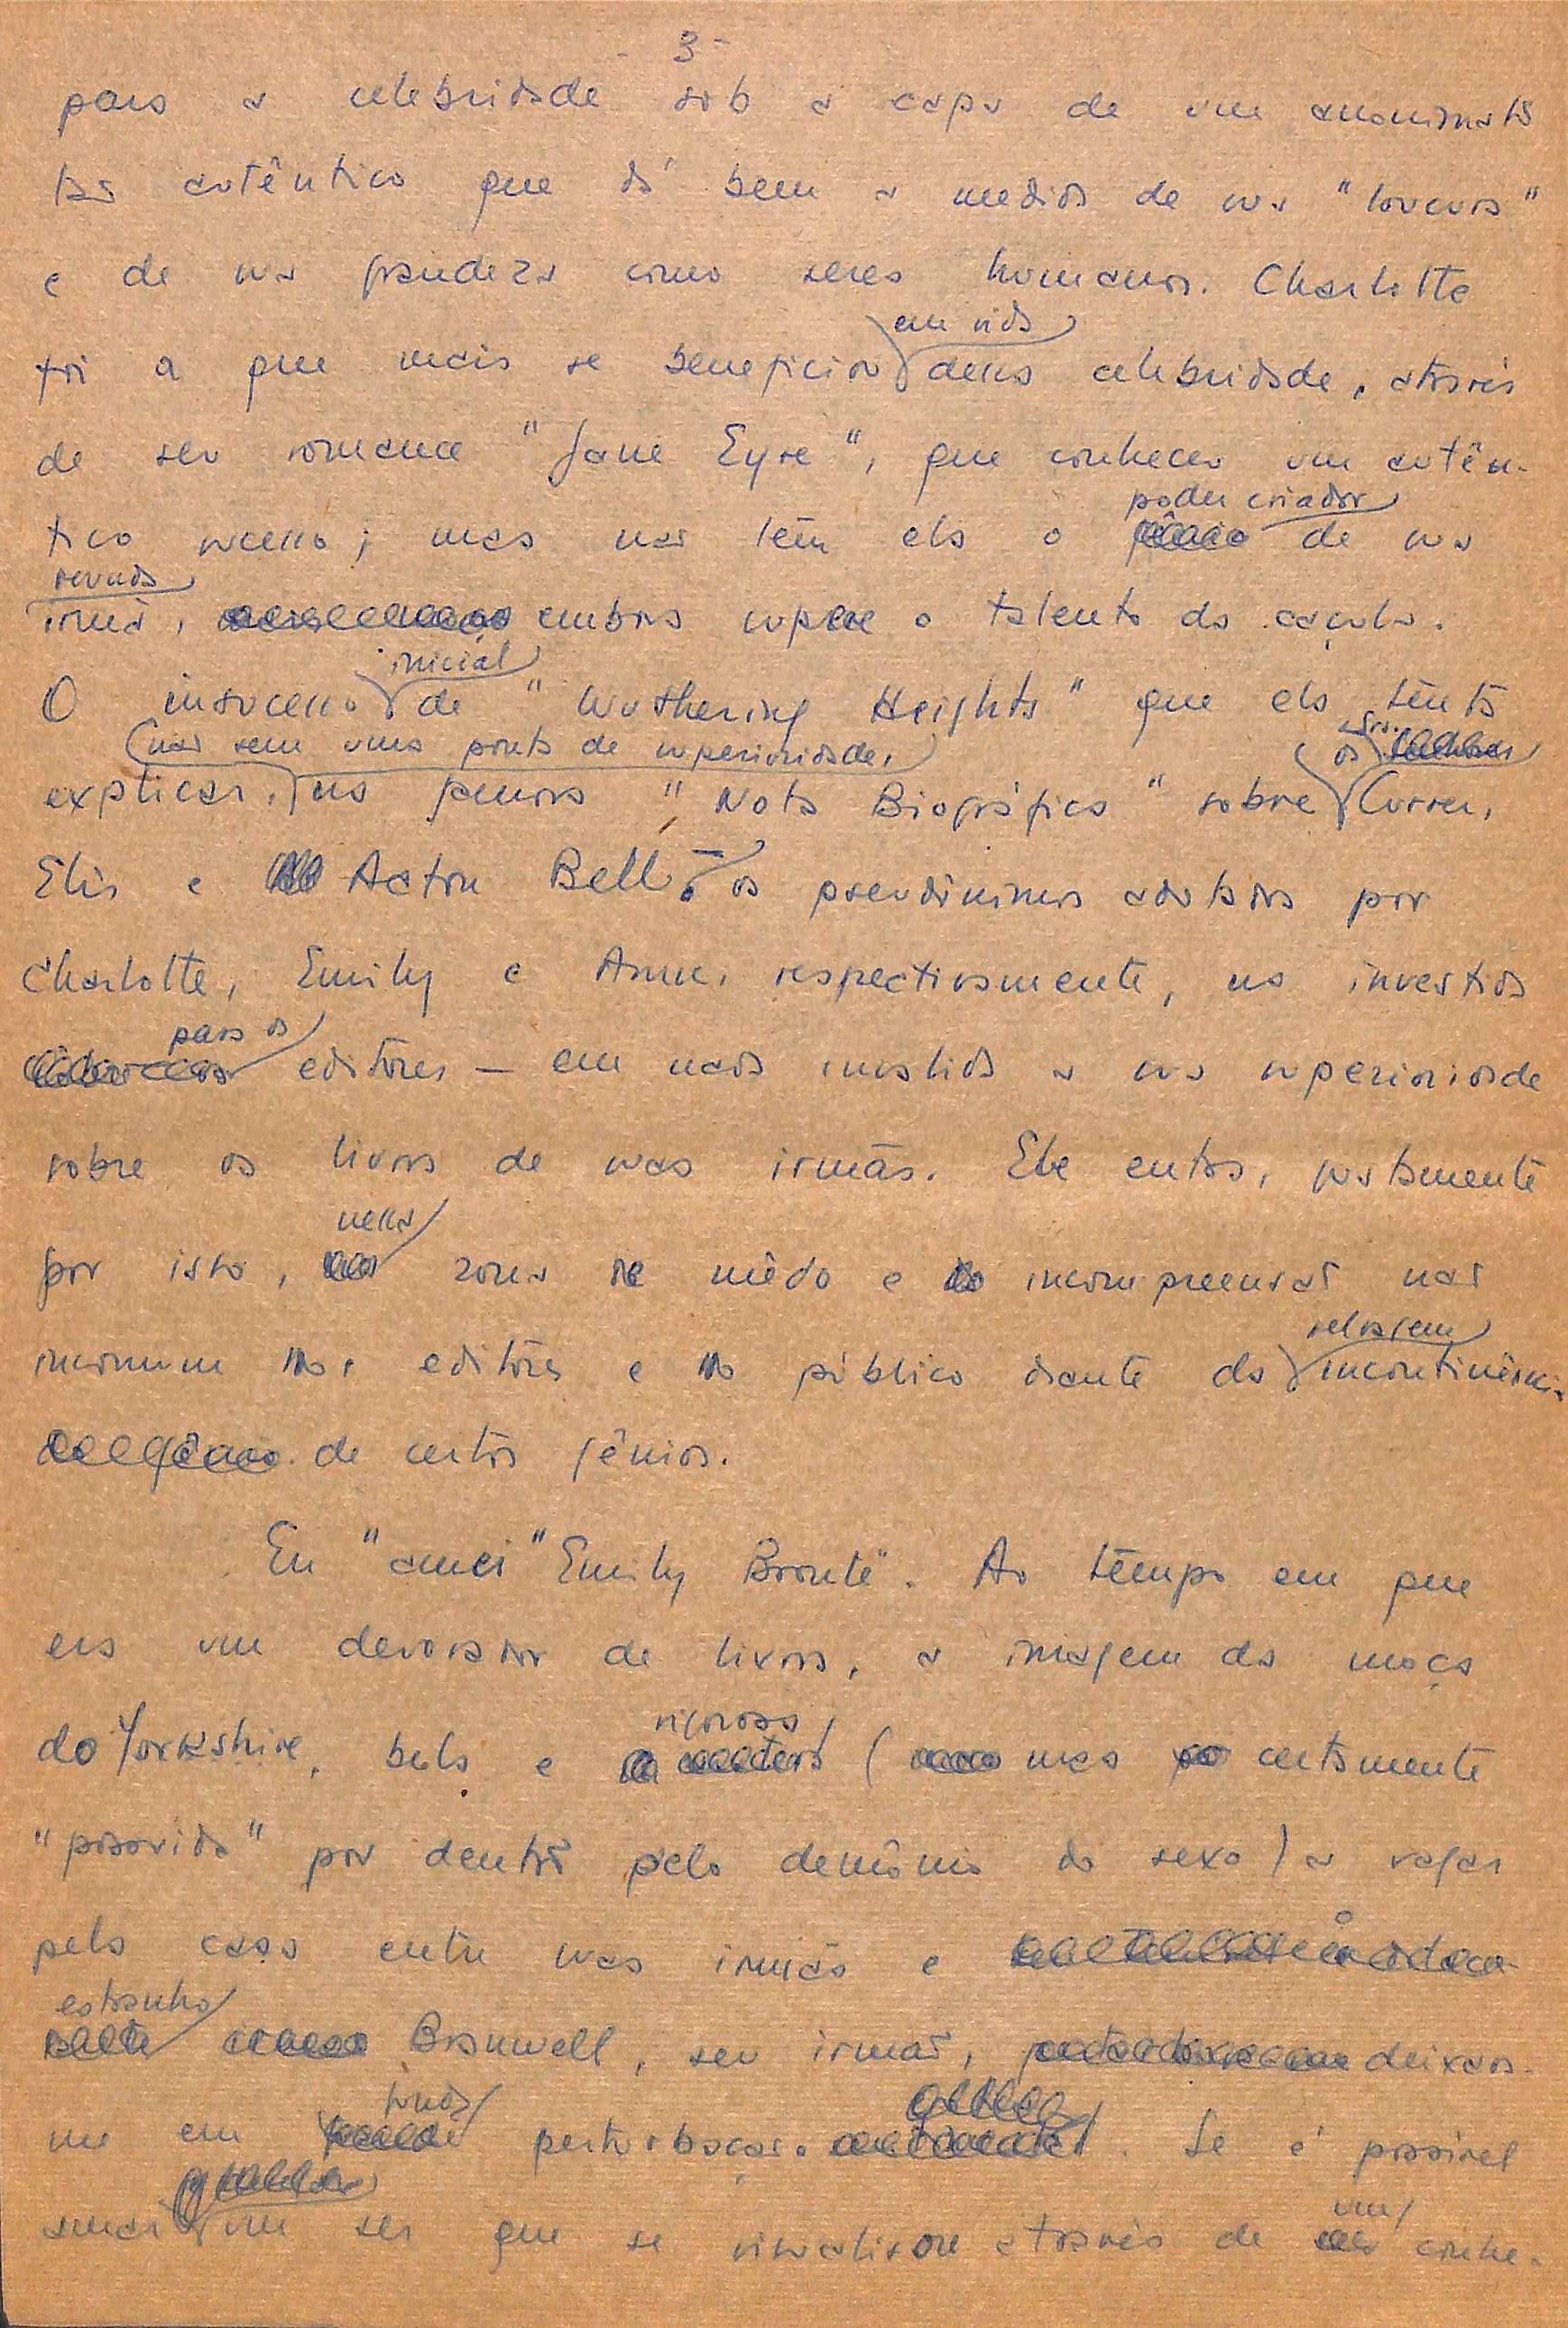 - 3 -
para a celebridade sob a capa de um anonimato
tão autêntico que dá bem a medida de sua "loucura"
e de sua grandeza como seres humanos. Charlotte
em vida
foi a que mais se beneficiou dessa celebridade, através
de seu romance "Jane Eyre", que conheceu um autên-
poder criador
tico sucesso; mas não têm ela o de sua
segunda
irmã, embora supere o talento da caçula.
inicial
O insucesso de "Wuthering Heights" que ela tenta
(não sem uma ponta de superioridade,
os
explicar, na famosa "Nota Biográfica" sobre Currer,
Elis e Acton Bell – os pseudônimos adotados por
Charlotte, Emily e Anne, respectivamente, na investida
para os
editôres – em nada invalida a sua superioridade
sobre os livros de suas irmãs. Ele entra, justamente
nessa
por isto, zona de mêdo e incompreensão não
selvagem
incomum nos editôres e no público diante da incontinência
de certos gênios.
Eu "amei" Emily Brontë. Ao têmpo em que
era um devorador de livros, a imagem da moça
vigorosa
do Yorkshire, bela e (mas certamente
"possuída" por dentro pelo demônio do sexo) a vagar
pela casa entre suas irmãs e
estranho
Branwell, seu irmão, deixava-
funda
me em perturbação. Se é possível
um
amar um ser que se visualisou através de conhe-